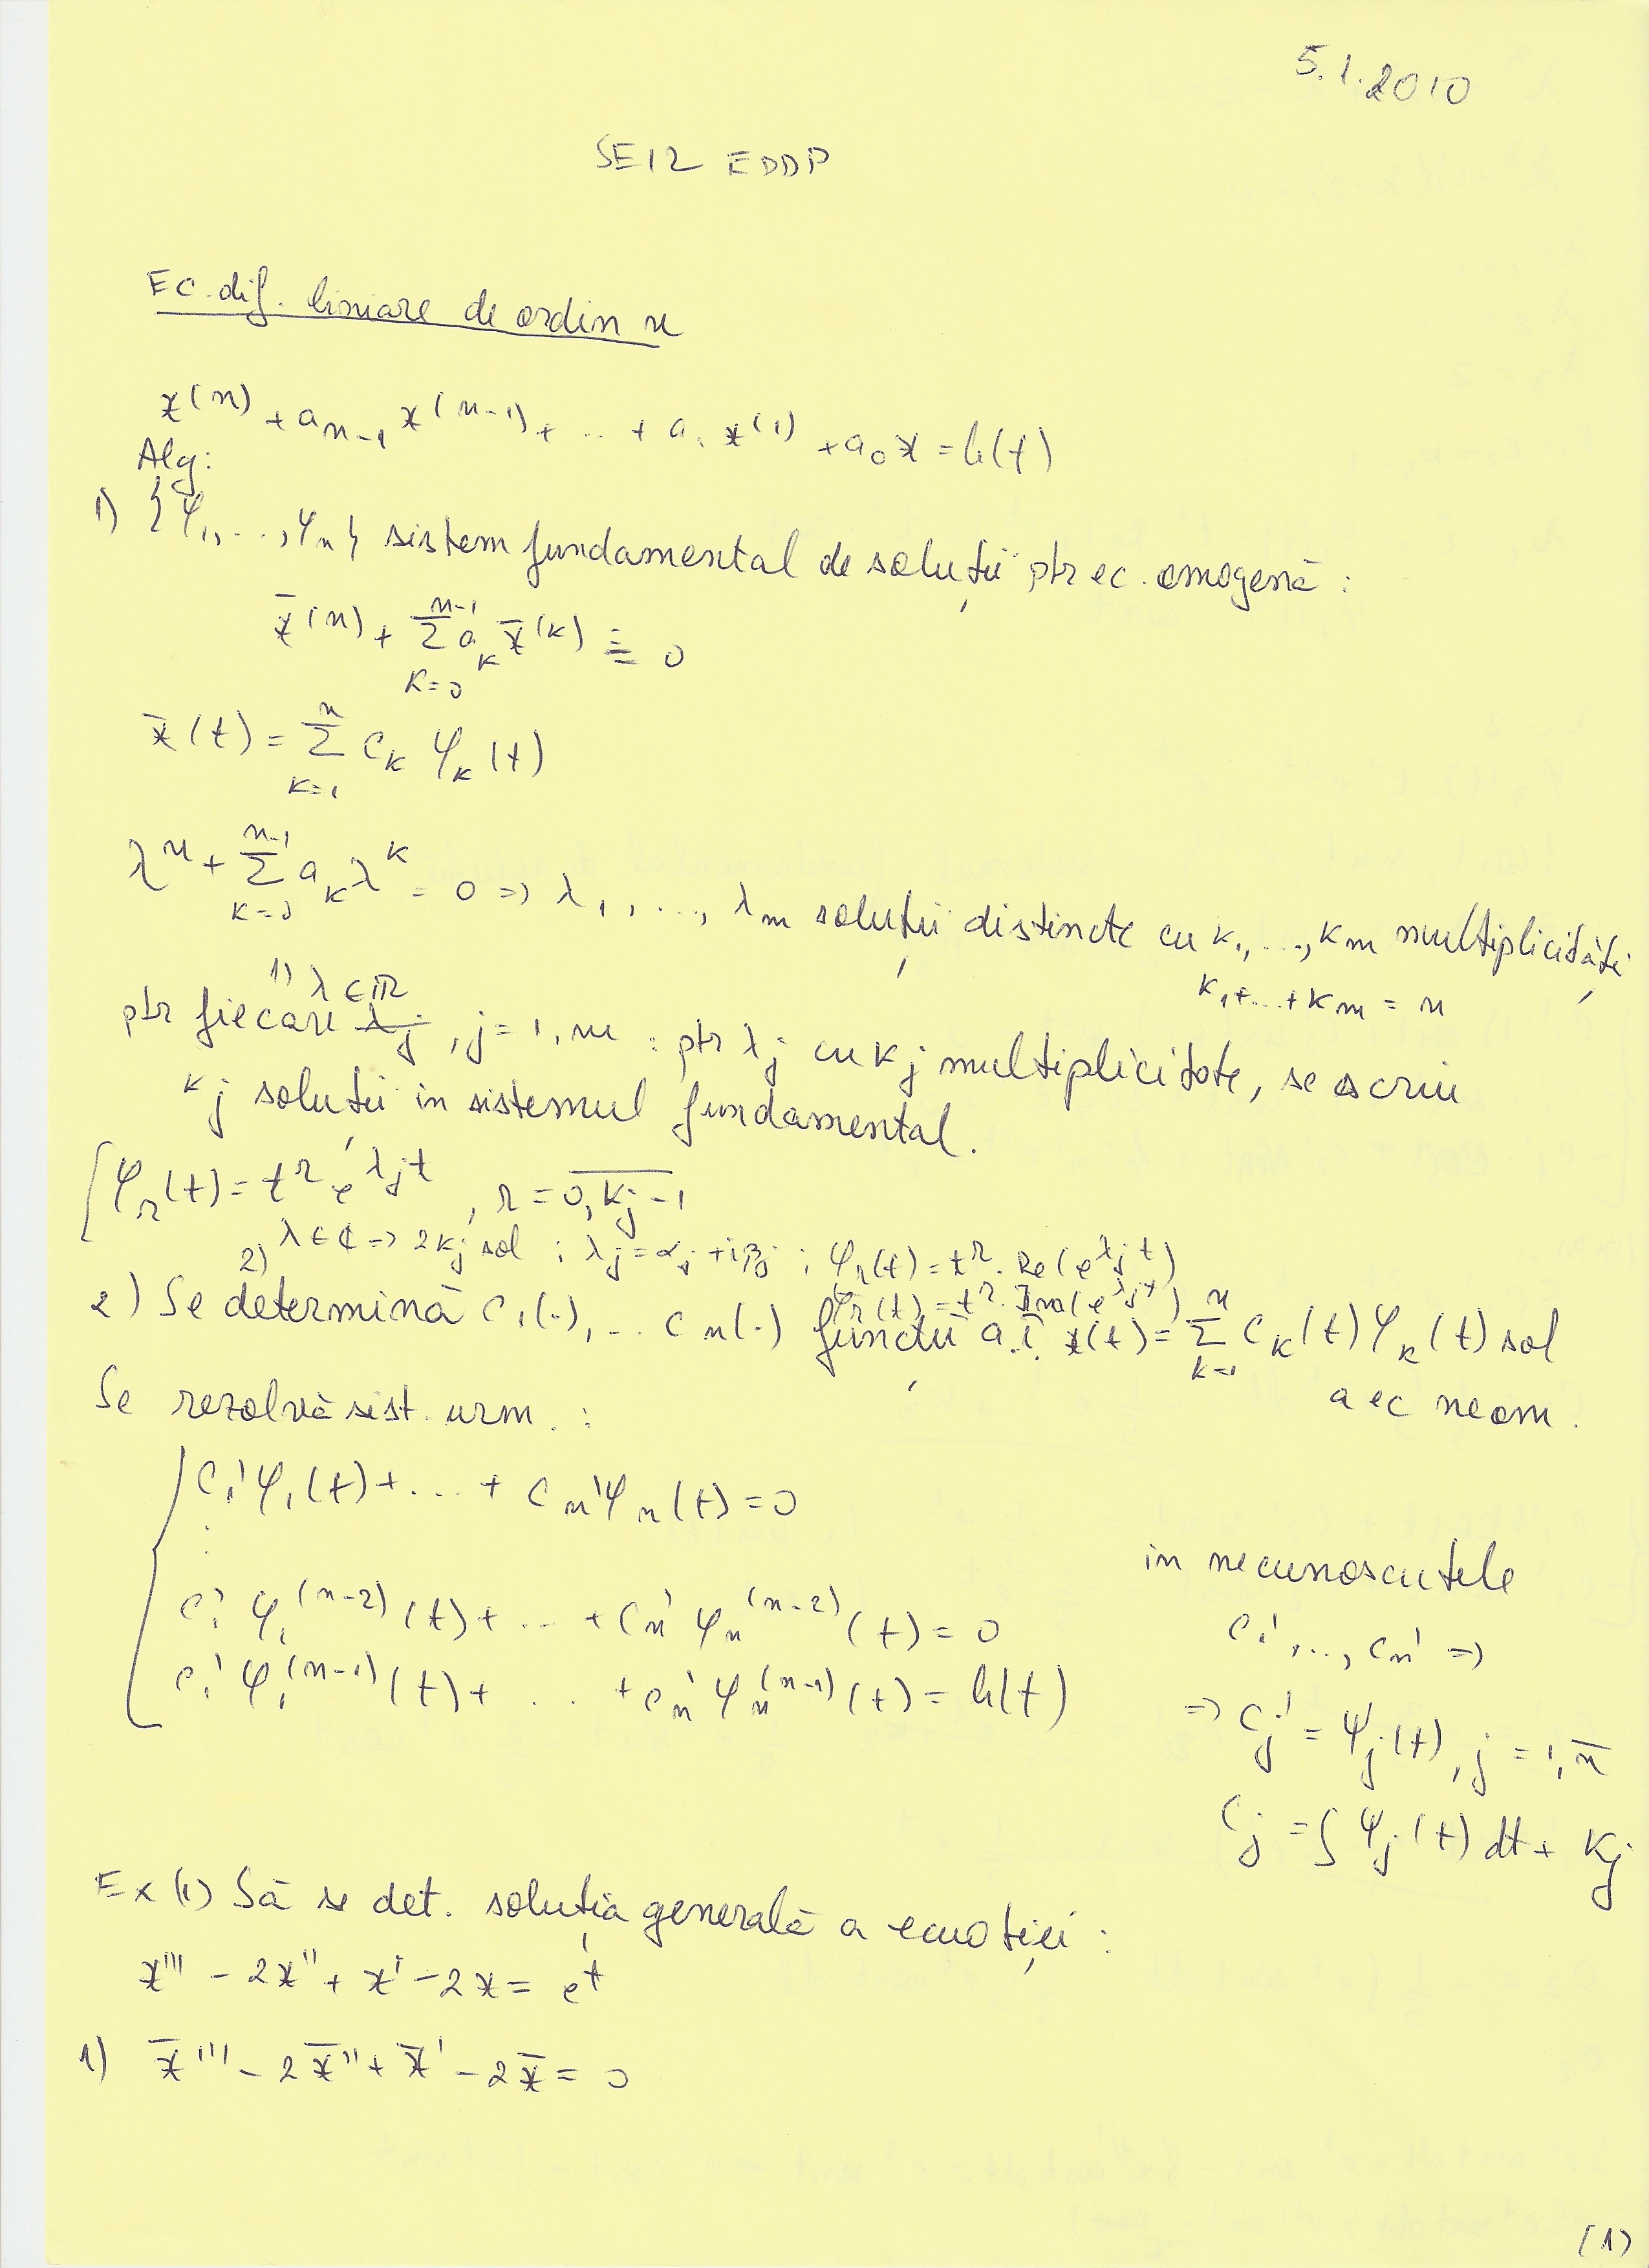 5.1.2010
SE12 EDDP
EC. dif. liniare de ordin n
x^(n) + a_{n-1} x^(n-1) + .. + a_1 x^(1) + a_0 x = h(t)
Alg:
1) {φ_1, ..., φ_n} sistem fundamental de soluții ptr ec. omogenă :
x̄^(n) + Σ_{k=0}^{n-1} a_k x̄^(k) = 0
x̄(t) = Σ_{k=1}^{n} C_k φ_k(t)
λ^n + Σ_{k=0}^{n-1} a_k λ^k = 0 => λ_1, ..., λ_m soluții distincte cu k_1, ..., k_m multiplicități
k_1 + ... + k_m = n
1) λ ∈ ℝ
ptr fiecare λ_j, j = 1, m : ptr λ_j cu k_j multiplicitate, se scriu
k_j soluții in sistemul fundamental.
φ_r(t) = t^r e^{λ_j t}, r = \overline{0, k_j - 1}
2) λ ∈ ℂ => 2k_j sol ; λ_j = α_j + iβ_j ; φ_r(t) = t^r . Re(e^{λ_j t})
φ_r(t) = t^r . Im(e^{λ_j t})
2) Se determină C_1(.), .. C_n(.) funcții a.î. x(t) = Σ_{k=1}^{n} C_k(t) φ_k(t) sol
a ec neom.
Se rezolvă sist. urm. :
C_1' φ_1(t) + ... + C_n' φ_n(t) = 0
⋮
C_1' φ_1^(n-2)(t) + .. + C_n' φ_n^(n-2)(t) = 0
C_1' φ_1^(n-1)(t) + .. + C_n' φ_n^(n-1)(t) = h(t)
in necunoscutele
C_1', .., C_n' =>
=> C_j' = ψ_j(t), j = \overline{1, n}
C_j = ∫ ψ_j(t) dt + K_j
Ex (1) Să se det. soluția generală a ecuației :
x''' - 2x'' + x' - 2x = e^t
1) x̄''' - 2x̄'' + x̄' - 2x̄ = 0
(1)